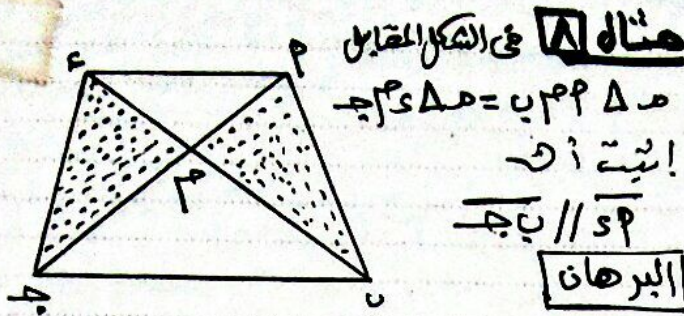 مثال ٨ في الشكل المقابل
مـ Δ أ م ب = مـ Δ د م جـ
اثبت أن
أد // ب جـ
البرهان
د
أ
م
جـ
ب